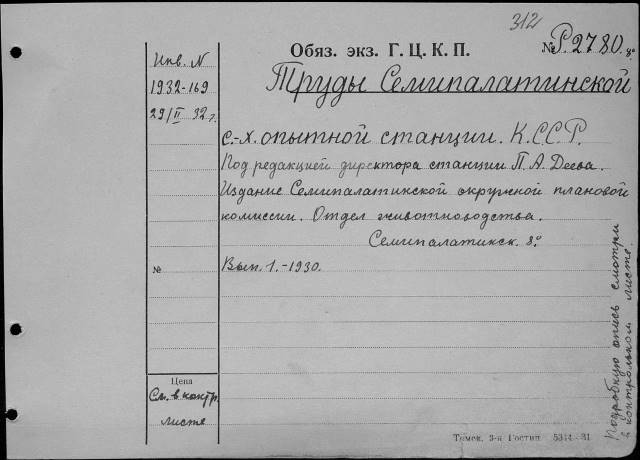 312
Обяз. экз. Г. Ц. К. П.
№ Р.2780. 8°
Инв. N
1932-169
29/II 32 г.
Труды Семипалатинской
с.-х. опытной станции. К.С.С.Р.
Под редакцией директора станции П. А. Деева.
Издание Семипалатинской окружной плановой
комиссии. Отдел животноводства.
Семипалатинск. 8°
№
Вып. 1.-1930.
Цена
См. в контр.
листе
Подробную опись смотри
в контрольном листе.
Томск. 3-я Гостип. 5314-31